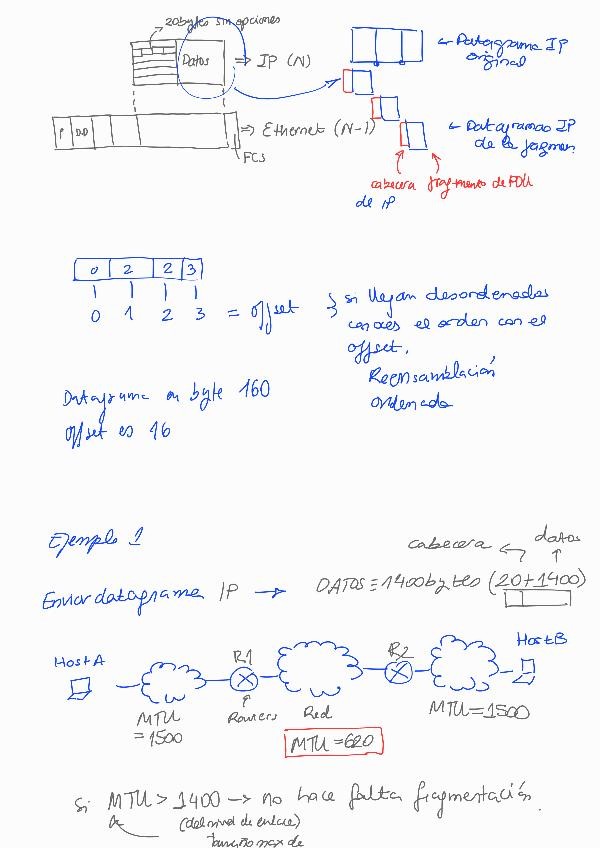 20 bytes sin opciones
Datos
⇒ IP (N)
← Datagrama IP
original
P
⇒ Ethernet (N-1)
FCS
← Datagramas IP
de la
cabecera fragmento de PDU
de IP
0 2 2 3
0 1 2 3 = offset
si llegan desordenados
el orden con el
offset.
Reensamblación
ordenada
Datagrama en byte 160
offset es 16
Ejemplo 1
cabecera datos
Enviar datagrama IP → DATOS = 1400 bytes (20+1400)
Host A
R1
R2
Host B
MTU
= 1500
Routers
Red
MTU = 620
MTU = 1500
Si MTU > 1400 → no hace falta fragmentación.
(del nivel de enlace)
tamaño max de